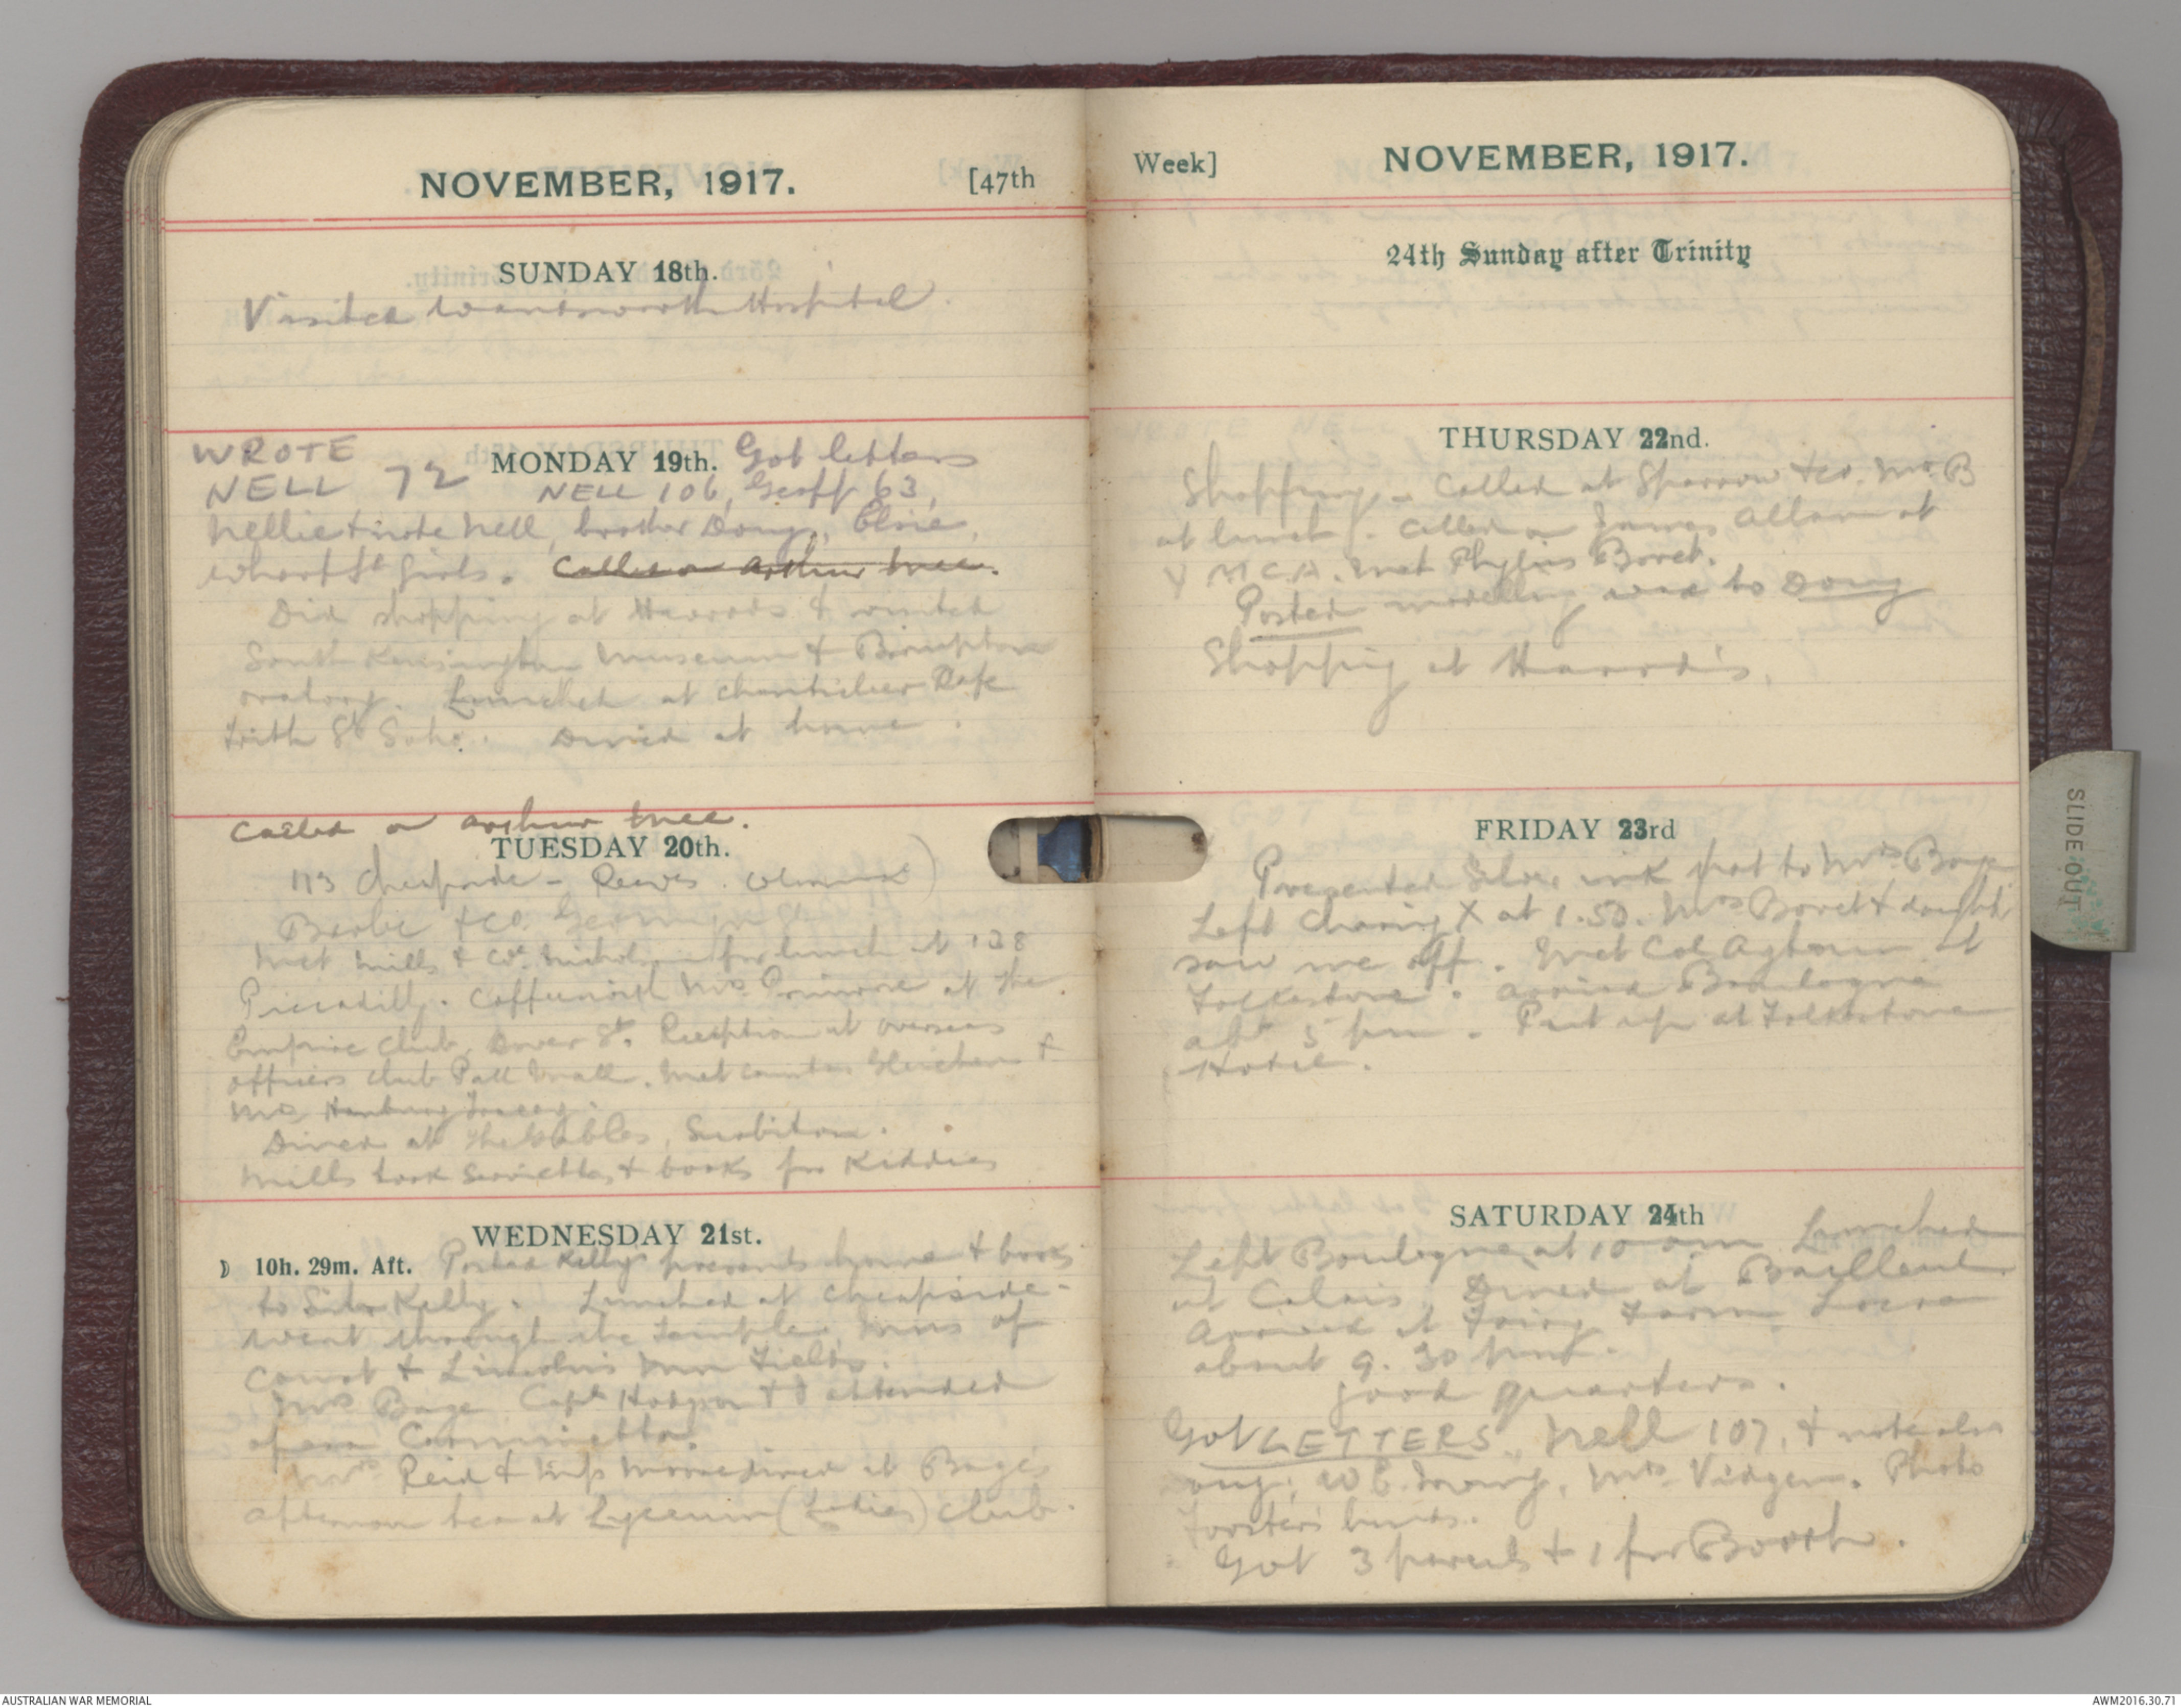 NOVEMBER, 1917. [47th
SUNDAY 18th.
Visited Wandsworth Hospital.
WROTE
NELL 72 MONDAY 19th. Got letters
NELL 106, Geoff 63,
Nellie & note Nell, brother Doug, Elsie,
Wharf St girls. Called on Arthur Tree.
Did shopping at Harrods & visited
South Kensington Museum & Brompton
oratory. Lunched at Chantecler Cafe
Frith St Soho. Dined at home.
Called on Arthur Tree.
TUESDAY 20th.
113 Cheapside - Reeves.
Barbe & Co.
Met Mills & for lunch at 128
Piccadilly. Mrs Primrose at the
Empire Club, Dover St. Reception at overseas
officers club Pall Mall. Met Countess Gleichen &
Mrs Hanbury Tracey.
Dined at The Gables, Surbiton.
Mills took serviettes & books for Kiddies
WEDNESDAY 21st.
☽ 10h. 29m. Aft. Posted Kelly presents home & books
to Kelly. Lunched at Cheapside -
Went through the Temple, Inns of
Court & Lincoln's Inn Fields.
Mrs Bage Capt Hodgson & I attended
opera
Mrs Reid & dined at Bage's
afternoon tea at Lyceum (Ladies) club.
Week] NOVEMBER, 1917.
24th Sunday after Trinity
THURSDAY 22nd.
Shopping - Called at Sparrow & Co. Mrs B
at lunch. Called on James Allan at
Y M C.A. Met Phyllis Boret.
Posted modelling wax to Doug
Shopping at Harrod's.
FRIDAY 23rd
Presented Silver ink pot to Mrs Bage
Left Charing X at 1.50. Mrs Boret & daughter
saw me off. Met Col at
Folkestone. Arrived Boulogne
abt 5 pm. Put up at Folkestone
Hotel.
SATURDAY 24th
Left Boulogne at 10 am Lunched
at Calais Dined at Bailleul
Arrived at Fairy Farm Locre
about 9.30 pm.
good quarters.
Got LETTERS, Nell 107, & note also
Doug, W E. Irving, Mrs Vidgen. Photo
Forster's
Got 3 parcels & 1 for Booth.
SLIDE OUT
AUSTRALIAN WAR MEMORIAL
AWM2016.30.71